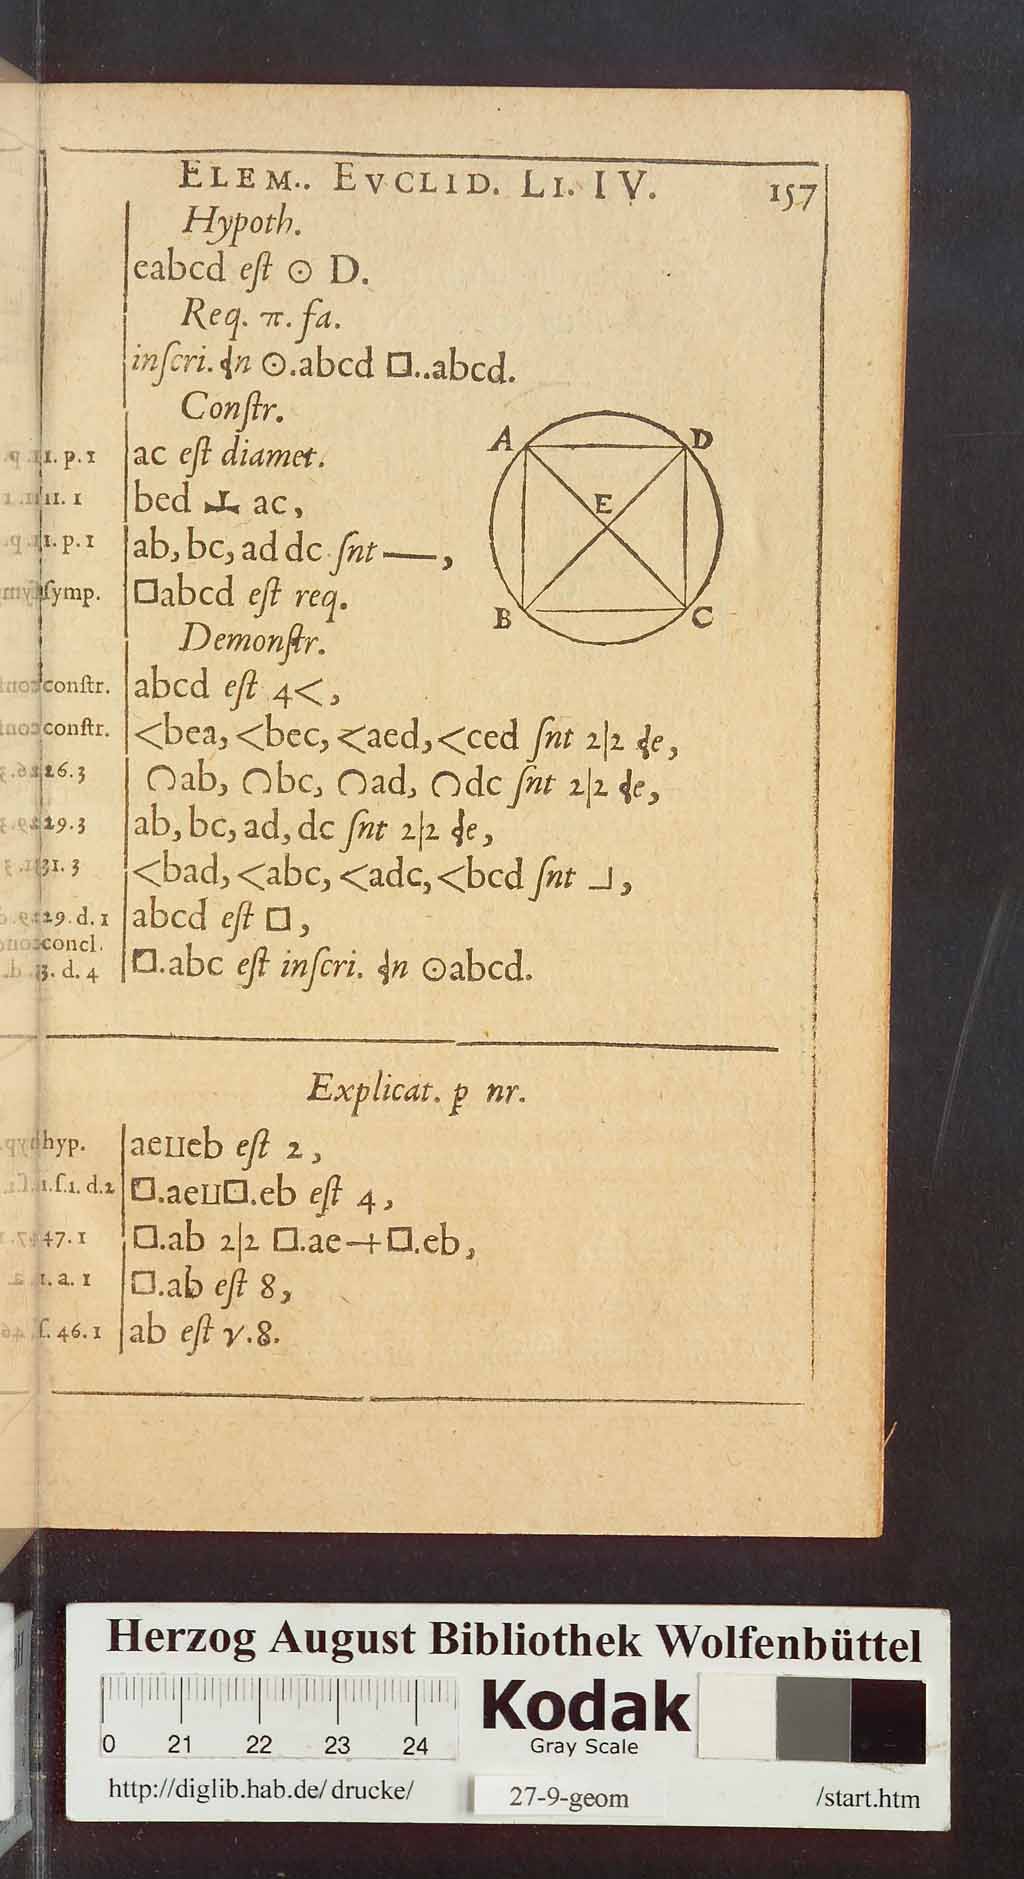 ELEM.. EVCLID. LI. IV. 157
Hypoth.
eabcd eſt ⊙ D.
Req. π. fa.
inſcri. ɖn ⊙.abcd □..abcd.
Conſtr.
1. p. 1 ac eſt diamet.
11. 1 bed ⊥ ac,
1. p. 1 ab, bc, ad dc ſnt —,
ſymp. □abcd eſt req.
Demonſtr.
conſtr. abcd eſt 4<,
conſtr. <bea, <bec, <aed, <ced ſnt 2|2 ɖe,
26. 3 ∩ab, ∩bc, ∩ad, ∩dc ſnt 2|2 ɖe,
29. 3 ab, bc, ad, dc ſnt 2|2 ɖe,
31. 3 <bad, <abc, <adc, <bcd ſnt ┘,
29. d. 1 abcd eſt □,
concl.
3. d. 4 □.abc eſt inſcri. ɖn ⊙abcd.
A D
E
B C
Explicat. ꝑ nr.
hyp. aeueb eſt 2,
1.ſ.1. d.2 □.aeu□.eb eſt 4,
47. 1 □.ab 2|2 □.ae+□.eb,
1. a. 1 □.ab eſt 8,
ſ. 46. 1 ab eſt v.8.
Herzog August Bibliothek Wolfenbüttel
0 21 22 23 24
Kodak
Gray Scale
http://diglib.hab.de/drucke/ 27-9-geom /start.htm